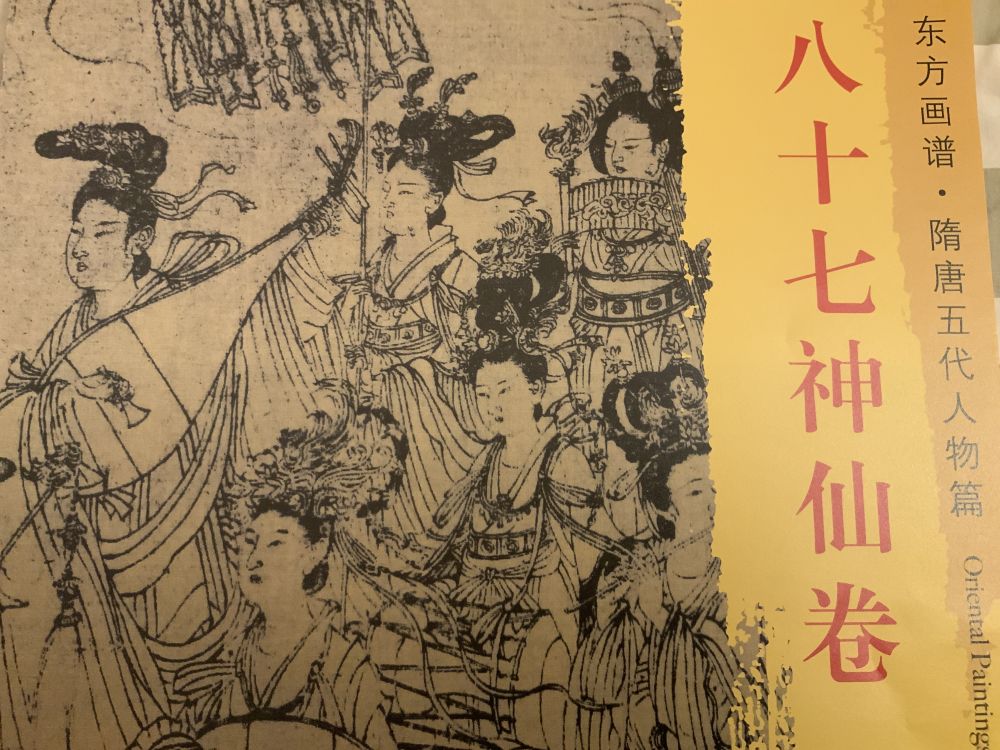 东方画谱·隋唐五代人物篇
Oriental Painting
八十七神仙卷